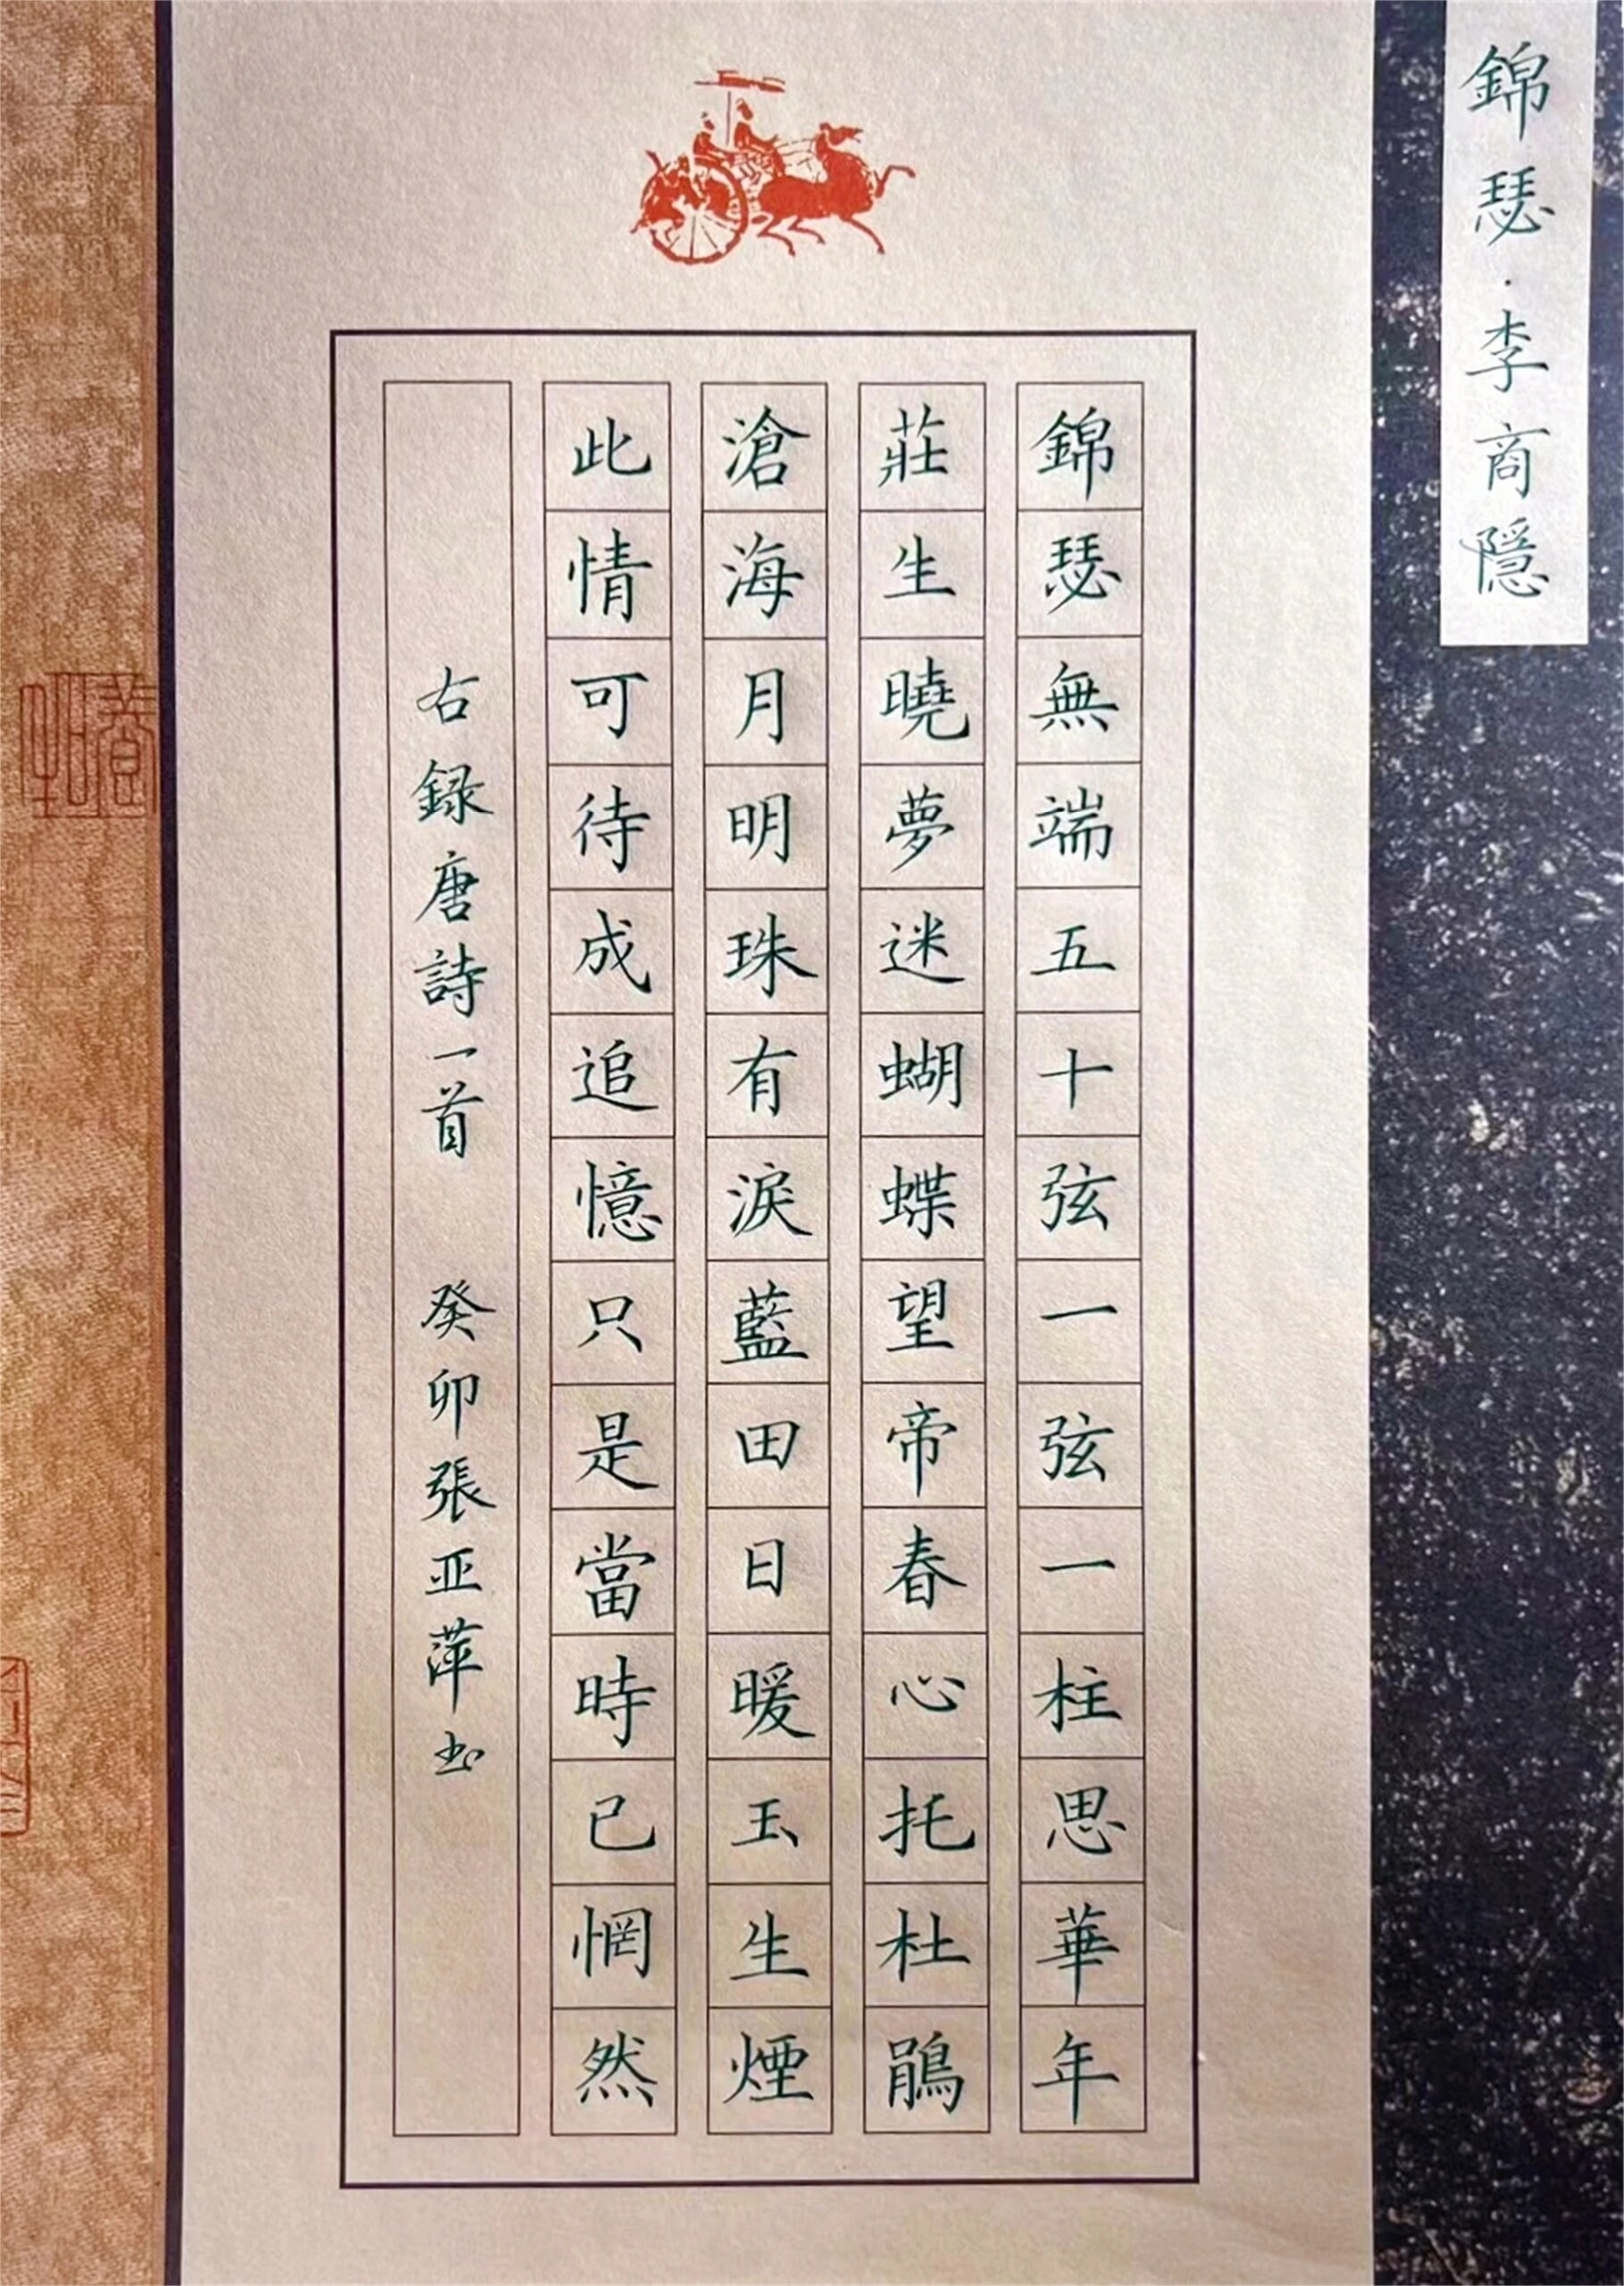 錦瑟·李商隱
錦瑟無端五十弦一弦一柱思華年
莊生曉夢迷蝴蝶望帝春心托杜鵑
滄海月明珠有淚藍田日暖玉生煙
此情可待成追憶只是當時已惘然
右録唐詩一首 癸卯張亚萍书